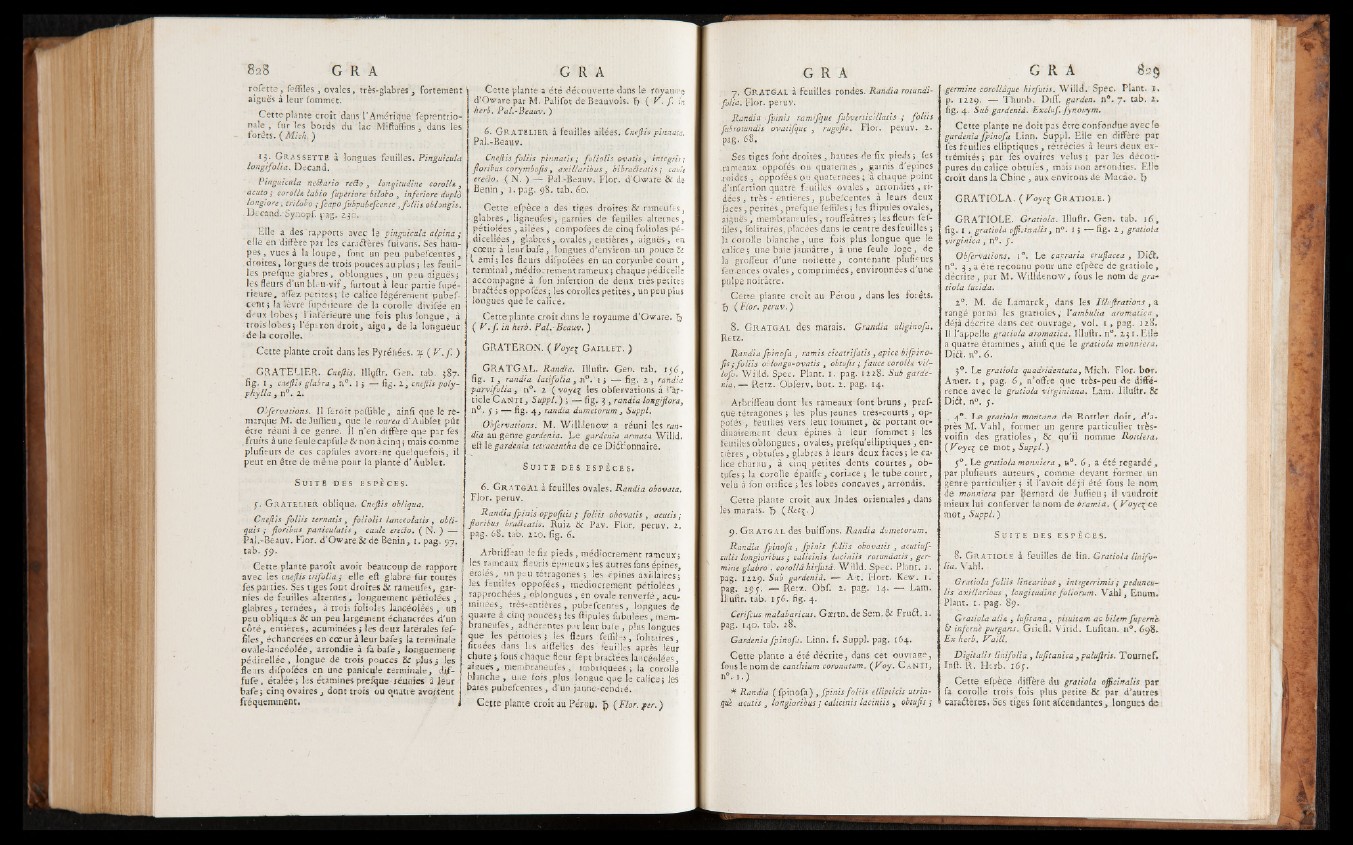 828 G R A
rosette, sessiles, ovales, très-glabres, fortement
aiguës à leur sommet.
Cette plante croît dans l'Amérique septentrio-
nale, sur les bords du lac Mistassins, dans les
forêts. (Mich.)
13. GRASSETTE à longues feuilles. Pinguicula
longifolia. Decand.
Pinguicula nectario recto, longitudine corollæ,
acuto; corollæ labio superiore bilobo, inferiore duplò
longiore, trilobo; scapo subpubescente, foliis oblongis.
Decand. Synops. pag. 230.
Elle a des rapports avec le pinguicula alpina;
elle en diffère par les caractères suivans. Ses ham-
pes, vues à la loupe, sont un peu pubescentes,
droites, longues de trois pouces au plus; les feuil-
les presque glabres, oblongues, un peu aiguës;
les fleurs d'un bleu-vif, surtout à leur partie supé-
rieure, assez petites; le calice légèrement pubes-
cent; la lèvre supérieure de la corolle divisée en
deux lobes; l'inférieure une fois plus longue, à
trois lobes; l'éperon droit, aigu, de la longueur
de la corolle.
Cette plante croît dans les Pyrénées. ♃ (V. s.)
GRATELIER. Cnestis. Illustr. Gen. tab. 387.
fig. 1, cnestis glabra, n°. 1; — fig. 2, cnestis poly-
phylla, n°. 2.
Observations. Il seroit possible, ainsi que le re-
marque M. de Jussieu, que le rourea d'Aublet pût
être réuni à ce genre. Il n'en diffère que par ses
fruits à une seule capsule & non à cinq; mais comme
plusieurs de ces capsules avortent quelquefois, il
peut en être de même pour la plante d'Aublet.
SUITE DES ESPÈCES.
5. GRATELIER oblique. Cnestis obliqua.
Cnestis foliis ternatis, foliolis lanceolatis, obli-
quis; floribus paniculatis, caule erecto. (N.) —
Pal.-Beauv. Flor. d'Oware & de Benin, 1. pag. 97.
tab. 59.
Cette plante paroît avoir beaucoup de rapport
avec les cnestis trifolia; elle est glabre sur toutes
ses parties. Ses tiges sont droites & rameuses, gar-
nies de feuilles alternes, longuement pétiolées,
glabres, ternées, à trois folioles lancéolées, un
peu obliques & un peu largement échancrées d'un
côté, entières, acuminées; les deux latérales ses-
siles, échancrées en cœur à leur base; la terminale
ovale-lancéolée, arrondie à sa base, longuement
pédicellée, longue de trois pouces & plus; les
fleurs disposées en une panicule terminale, dif-
fuse, étalée; les étamines presque réunies à leur
base; cinq ovaires, dont trois ou quatre avortent
fréquemment.
G R A
Cette plante a été découverte dans le royaume
d'Oware par M. Palisot de Beauvois. ♄ (V. s. in
herb. Pal.-Beauv.)
6. GRATELIER à feuilles ailées. Cnestis pinnata.
Pal.-Beauv.
Cnestis foliis pinnatis; foliolis ovatis, integris;
floribus corymbosis, axillaribus, bibracteatis; caule
erecto. (N.) — Pal.-Beauv. Flor. d'Oware & de
Benin, 1. pag. 98. tab. 60.
Cette espèce a des tiges droites & rameuses,
glabres, ligneuses, garnies de feuilles alternes,
pétiolées, ailées, composées de cinq folioles pé-
dicellées, glabres, ovales, entières, aiguës, en
cœur à leur base, longues d'environ un pouce &
demi; les fleurs disposées en un corymbe court,
terminal, médiocrement rameux; chaque pédicelle
accompagné à son insertion de deux très-petites
bractées opposées; les corolles petites, un peu plus
longues que le calice.
Cette plante croît dans le royaume d'Oware. ♄
(V. s. in herb. Pal.-Beauv.)
GRATERON. (Voyez GAILLET.)
GRATGAL. Randia. Illustr. Gen. tab. 156,
fig. 1, randia latifolia, n°. 1; — fig. 2, randia
parvifolia, n°. 2 (voyez les observations à l'ar-
ticle CANTI, Suppl.); — fig. 3, randia longiflora,
n°. 5; — fig. 4, randia dumetorum, Suppl.
Observations. M. Willdenow a réuni les ran-
dia au genre gardenia. Le gardenia armata Willd.
est le gardenia tetracantha de ce Dictionnaire.
SUITE DES ESPÈCES.
6. GRATGAL à feuilles ovales. Randia obovata.
Flor. peruv.
Randia spinis oppositis; foliis obovatis, acutis;
floribus bracteatis. Ruiz & Pav. Flor. peruv. 2.
pag. 68. tab. 220. fig. 6.
Arbrisseau de six pieds, médiocrement rameux;
les rameaux fleuris épineux; les autres sans épines,
étalés, un peu tétragones; les épines axillaires;
les feuilles opposées, médiocrement pétiolées,
rapprochées, oblongues, en ovale renversé, acu-
minées, très-entières, pubescentes, longues de
quatre à cinq pouces; les stipules subulées, mem-
braneuses, adhérentes par leur base, plus longues
que les pétioles; les fleurs sessiles, solitaires,
situées dans les aisselles des feuilles après leur
chute; sous chaque fleur sept bractées lancéolées,
aiguës, membraneuses, imbriquées; la corolle
blanche, une fois plus longue que le calice; les
baies pubescentes, d'un jaune-cendré.
Cette plante croît au Pérou. ♄ (Flor. per.)
G R A
7. GRATGAL à feuilles rondes. Randia rotundi-
folia. Flor. peruv.
Randia spinis ramisque subverticillatis; foliis
subrotundis ovatisque, rugosis. Flor. peruv. 2.
pag. 68.
Ses tiges sont droites, hautes de six pieds; ses
rameaux opposés ou quaternes, garnis d'épines
roides, opposées ou quaternées; à chaque point
d'insertion quatre feuilles ovales, arrondies, ri-
dées, très-entières, pubescentes à leurs deux
faces, petites, presque sessiles; les stipules ovales,
aiguës, membraneuses, roussâtres; les fleurs ses-
siles, solitaires, placées dans le centre des feuilles;
la corolle blanche, une fois plus longue que le
calice; une baie jaunâtre, à une seule loge, de
la grosseur d'une noisette, contenant plusieurs
semences ovales, comprimées, environnées d'une
pulpe noirâtre.
Cette plante croît au Pérou, dans les forêts.
♄ (Flor. peruv.)
8. GRATGAL des marais. Grandia uliginosa.
Retz.
Randia spinosa, ramis cicatrisatis, apice bispino-
sis; foliis oblongo-ovatis, obtusis; fauce corollæ vil-
loso. Willd. Spec. Plant. 1. pag. 1228. Sub garde-
niâ. — Retz. Observ. bot. 2. pag. 14.
Arbrisseau dont les rameaux sont bruns, pres-
que tétragones; les plus jeunes très-courts, op-
posés, feuillés vers leur sommet, & portant or-
dinairement deux épines à leur sommet; les
feuilles oblongues, ovales, presqu'elliptiques, en-
tières, obtuses, glabres à leurs deux faces; le ca-
lice charnu, à cinq petites dents courtes, ob-
tuses; la corolle épaisse, coriace; le tube court,
velu à son orifice; les lobes concaves, arrondis.
Cette plante croît aux Indes orientales, dans
les marais. ♄ (Retz.)
9. GRATGAL des buissons. Randia dumetorum.
Randia spinosa, spinis foliis obovatis, acutius-
culis longioribus; calicinis laciniis rotundatis, ger-
mine glabro, corollâ hirsutâ. Willd. Spec. Plant. 1.
pag. 1229. Sub gardeniâ. — Ait. Hort. Kew. 1.
pag. 295. — Retz. Obs. 2. pag. 14. — Lam.
Illustr. tab. 156. fig. 4.
Ceriscus malabaricus. Gærtn. de Sem. & Fruct. 1.
pag. 140. tab. 28.
Gardenia spinosa. Linn. f. Suppl. pag. 164.
Cette plante a été décrite, dans cet ouvrage,
sous le nom de canthium coronatum. (Voy. CANTI,
n°. 1.)
* Randia (spinosa), spinis foliis ellipticis utrin-
què acutis, longioribus; calicinis laciniis, obtusis;
G R A 829
germine corollâque hirsutis. Willd. Spec. Plant. 1.
p. 1229. — Thunb. Diss. garden. n°. 7. tab. 2.
fig. 4. Sub gardeniâ. Excluf. synonym.
Cette plante ne doit pas être confondue avec le
gardenia spinosa Linn. Suppl. Elle en diffère par
ses feuilles elliptiques, rétrécies à leurs deux ex-
trémités; par ses ovaires velus; par les décou-
pures du calice obtuses, mais non arrondies. Elle
croît dans la Chine, aux environs de Macao. ♄
GRATIOLA. (Voyez GRATIOLE.)
GRATIOLE. Gratiola. Illustr. Gen. tab. 16,
fig. 1, gratiola officinalis, n°. 1; — fig. 2, gratiola
virginica, n°. 5.
Observations. 1°. Le capraria crustacea, Dict.
n°. 3, a été reconnu pour une espèce de gratiole,
décrite, par M. Willdenow, sous le nom de gra-
tiola lucida.
2°. M. de Lamarck, dans les Illustrations, a
rangé parmi les gratioles, l'ambulia aromatica,
déjà décrite dans cet ouvrage, vol. 1, pag. 128.
Il l'appelle gratiola aromatica. Illustr. n°. 231. Elle
a quatre étamines, ainsi que le gratiola monniera.
Dict. n°. 6.
3°. Le gratiola quadridentata, Mich. Flor. bor.
Amer. 1, pag. 6, n'offre que très-peu de diffé-
rence avec le gratiola virginiana. Lam. Illustr. &
Dict. n°. 5.
4°. Le gratiola montana de Rottler doit, d'a-
près M. Vahl, former un genre particulier très-
voisin des gratioles, & qu'il nomme Rottlera.
(Voyez ce mot, Suppl.)
5°. Le gratiola monniera, n°. 6, a été regardé,
par plusieurs auteurs, comme devant former un
genre particulier; il l'avoit déjà été sous le nom
de monniera par Bernard de Jussieu; il vaudroit
mieux lui conserver le nom de bramia. (Voyez ce
mot, Suppl.)
SUITE DES ESPÈCES.
8. GRATIOLE à feuilles de lin. Gratiola linifo-
lia. Vahl.
Gratiola foliis linearibus, integerrimis; peduncu-
lis axillaribus, longitudine foliorum. Vahl, Enum.
Plant. 1. pag. 89.
Gratiola alia, lusitana, pituitam ac bilem supernè
& infernè purgans. Grisl. Virid. Lusitan. n°. 698.
Ex herb. Vaill.
Digitalis linifolia, lusitanica, palustris. Tournef.
Inst. R. Herb. 165.
Cette espèce diffère du gratiola officinalis par
sa corolle trois fois plus petite & par d'autres
caractères. Ses tiges sont ascendantes, longues de